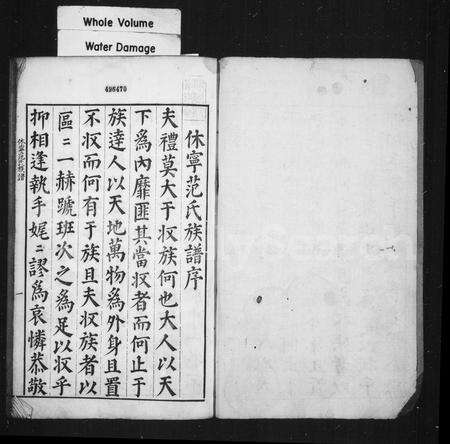 Whole Volume
Water Damage
498470
休寧范氏族譜序
夫禮莫大于収族何也大人以天
下為內靡匪其當収者而何止于
族達人以天地萬物為外身且置
不収而何有于族且夫収族者以
區〻一赫蹏班次之為足以収乎
抑相逢執手娓〻謬為哀憐恭敬
休寧范氏族譜